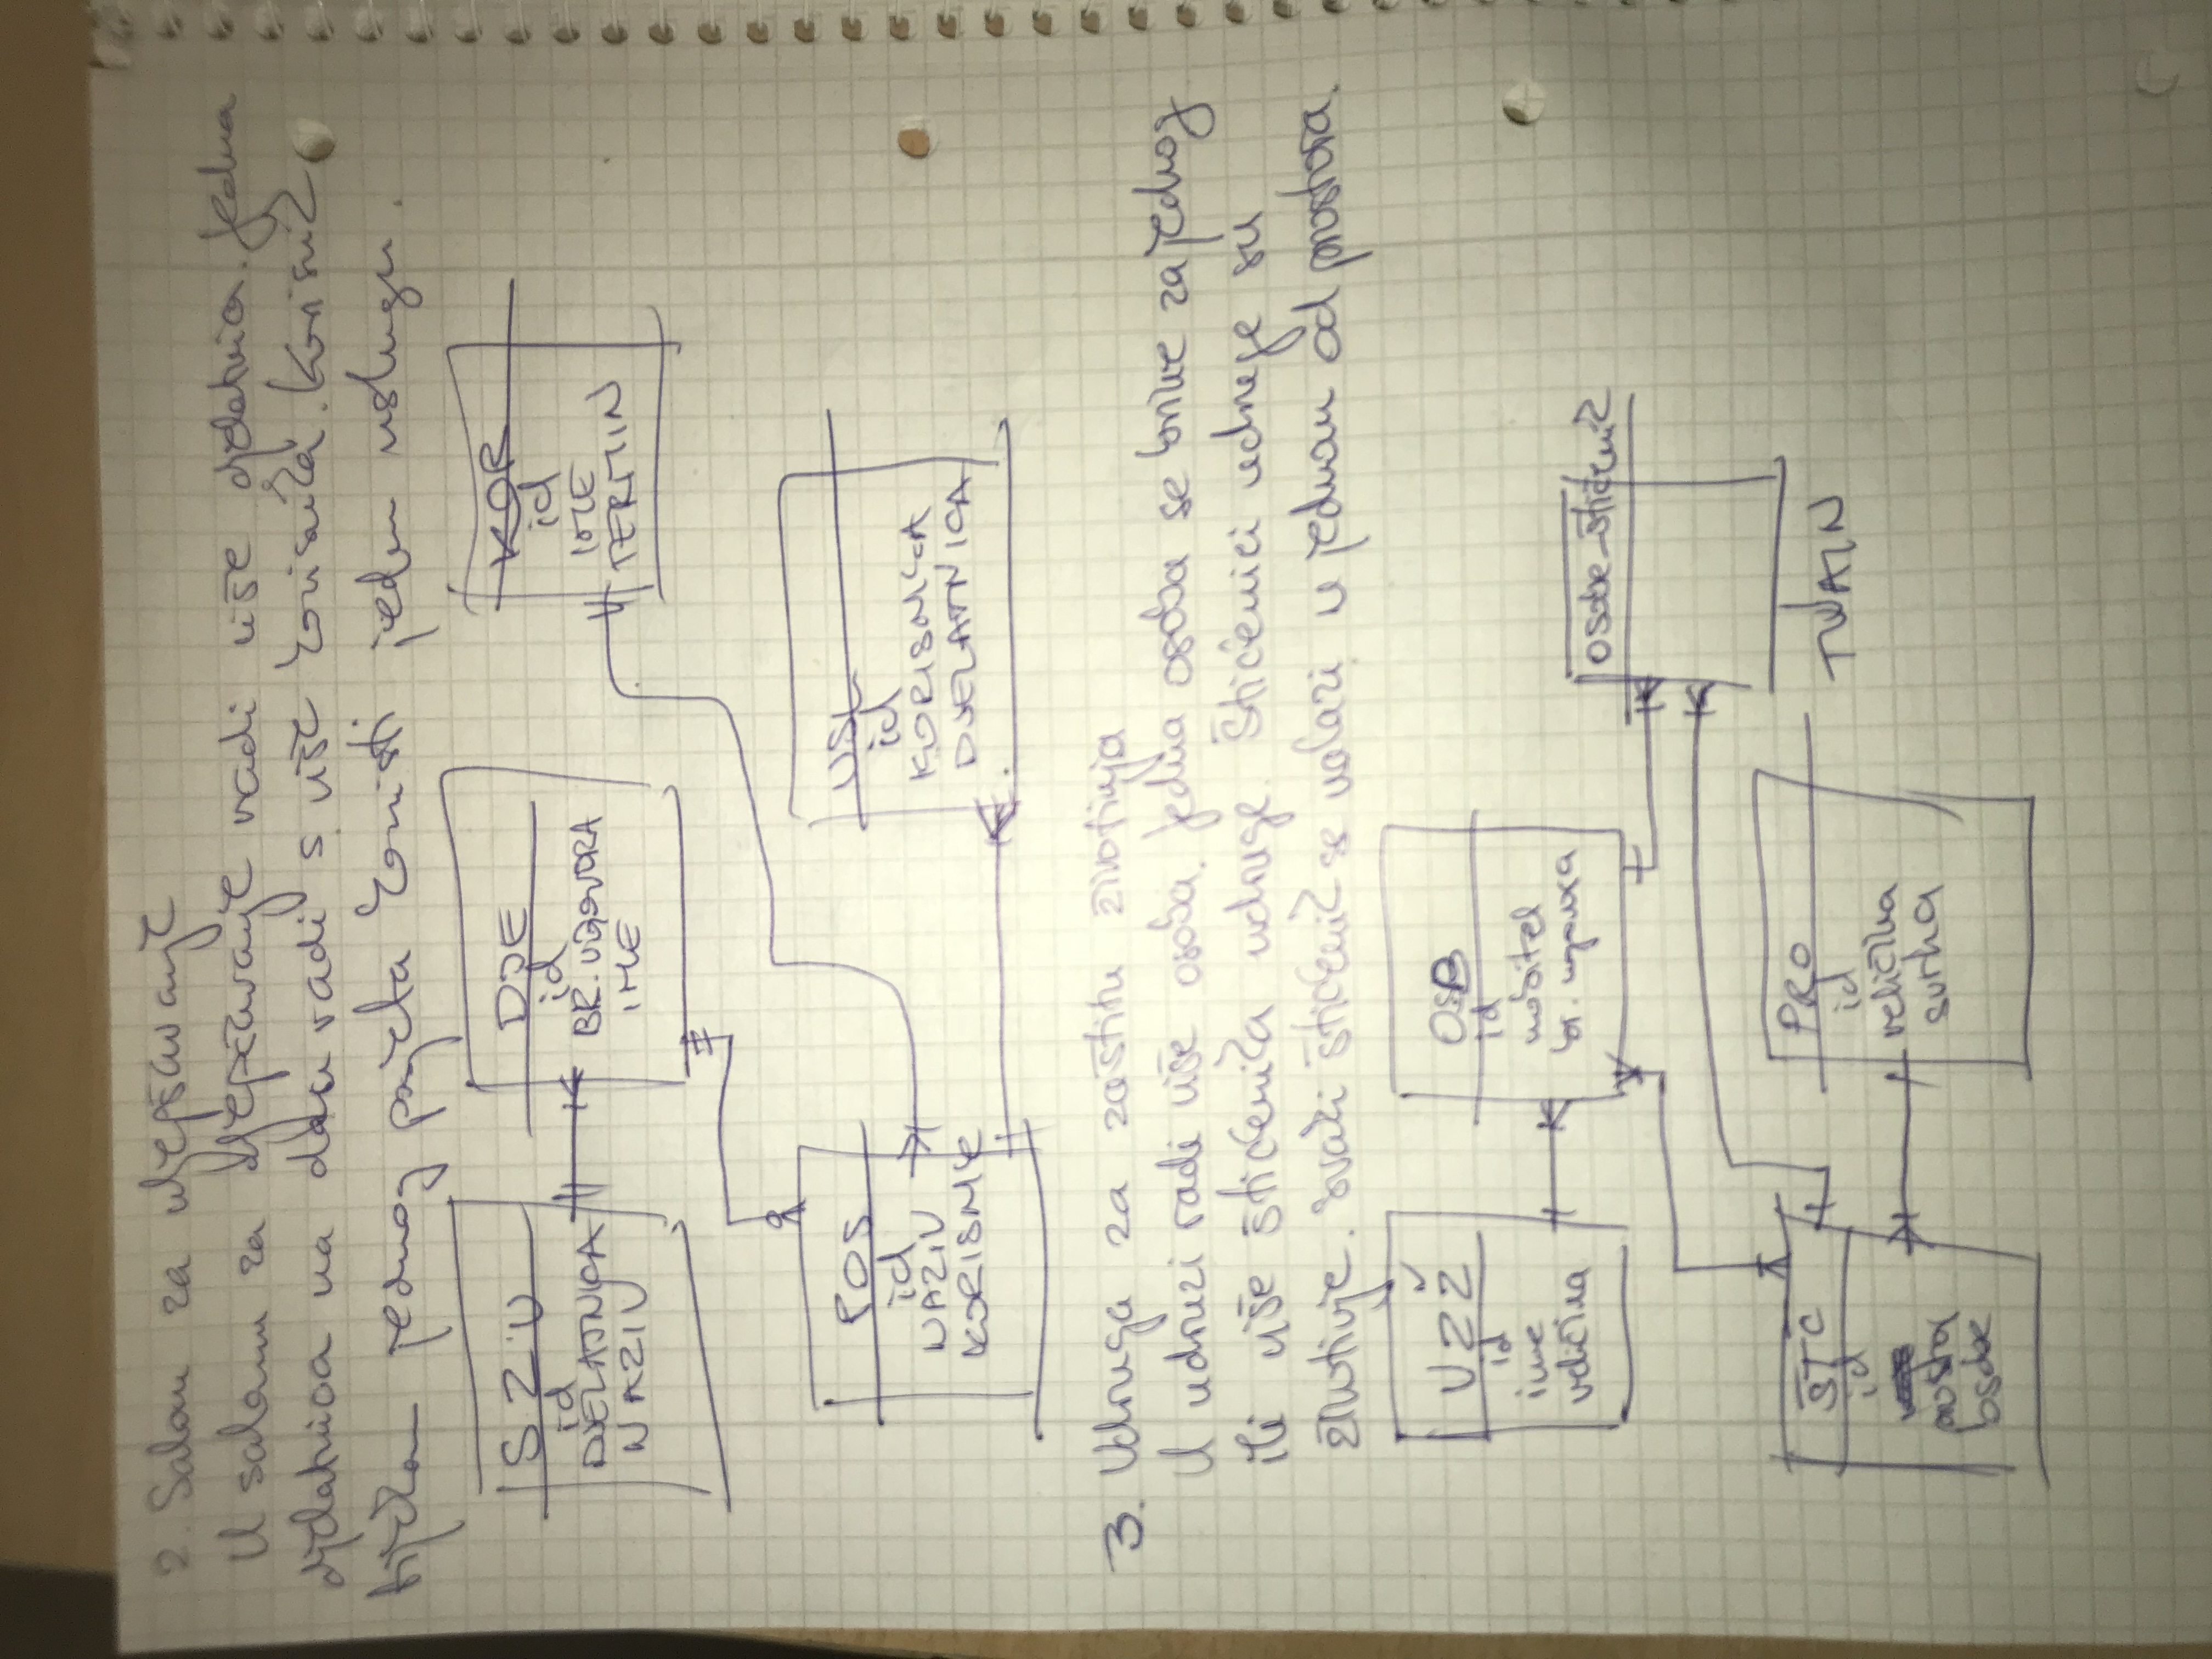 2. Salon za uljepšavanje
U salonu za uljepšavanje radi više djelatnica. Jedna
djelatnica na dan radi s više korisnika. Korisnik
tijekom jednog posjeta koristi jednu uslugu.
SZU
id
DJELATNICA
NAZIV
DJE
id
BR. UGOVORA
IME
KOR
id
IME
TERMIN
POS
id
NAZIV
KORISNIK
USL
id
KORISNICA
DJELATNICA
3. Udruga za zaštitu životinja
U udruzi radi više osoba. Jedna osoba se brine za jednog
ili više štićenika udruge. Štićenici udruge su
životinje. Svaki štićenik se nalazi u jednom od prostora.
UZŽ
id
ime
veličina
OSB
id
mobitel
br. ugovora
osobe-štićenik
ŠTC
id
prostor
osobe
PRO
id
veličina
svrha
TWAIN